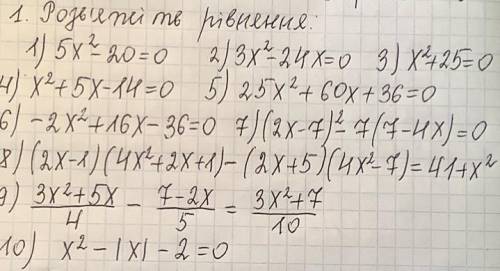 1. Розв'яжіть рівнення:
1) 5x²-20=0 2) 3x²-24x=0 3) x²+25=0
4) x²+5x-14=0 5) 25x²+60x+36=0
6) -2x²+16x-36=0 7) (2x-7)²-7(7-4x)=0
8) (2x-1)(4x²+2x+1)-(2x+5)(4x²-7)=41+x²
9) (3x²+5x)/4 - (7-2x)/5 = (3x²+7)/10
10) x²-|x|-2=0